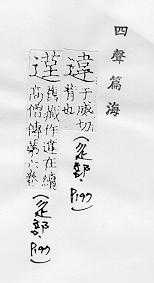 四聲篇海
違
于威切
背也
(辵部、P197)
舊藏作逹在續
高僧傳第六卷
(辵部、P197)